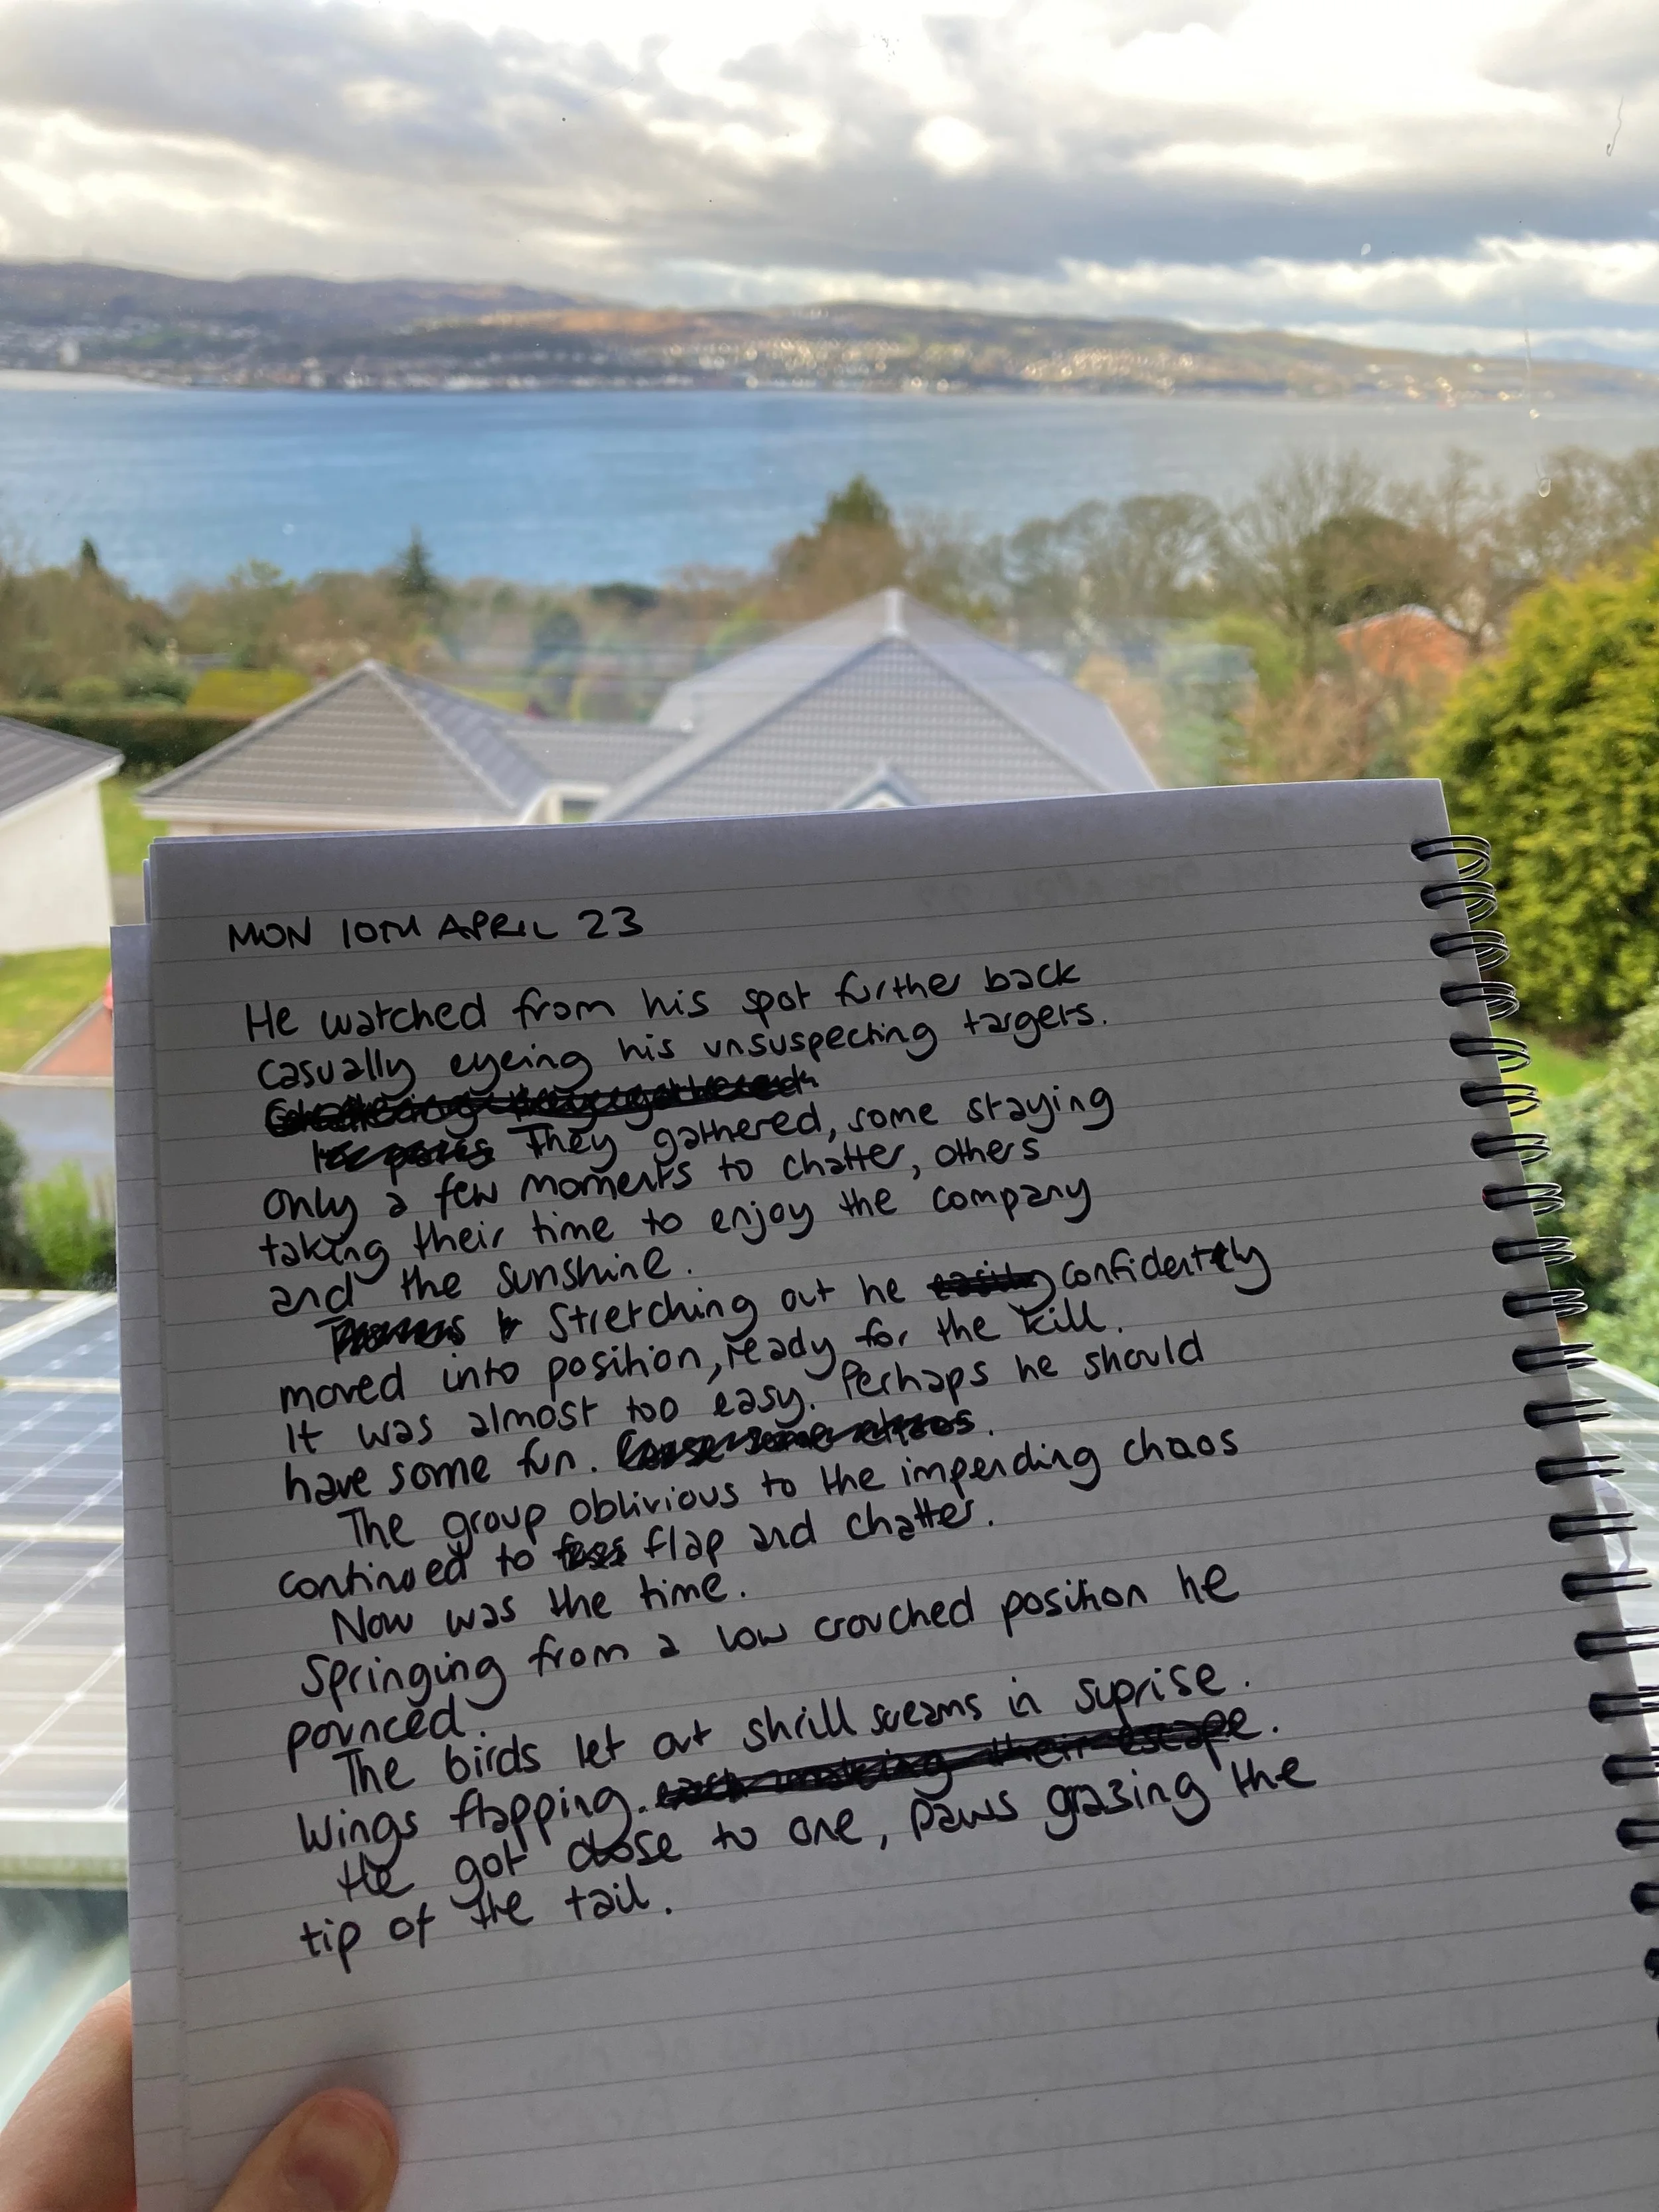 MON 10TH APRIL 23
He watched from his spot further back
casually eyeing his unsuspecting targets.
They gathered, some staying
only a few moments to chatter, others
taking their time to enjoy the company
and the sunshine.
Stretching out he confidently
moved into position, ready for the kill.
It was almost too easy. Perhaps he should
have some fun.
The group oblivious to the impending chaos
continued to flap and chatter.
Now was the time.
Springing from a low crouched position he
pounced.
The birds let out shrill screams in suprise.
Wings flapping.
He got close to one, paws grazing the
tip of the tail.